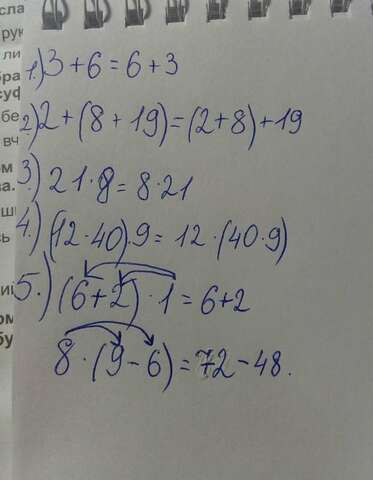 сла
рук
ли
бра
суф
бе
вч
ом
ва.
ши
сь
ни
ом
бу
1.) 3 + 6 = 6 + 3
2) 2 + (8 + 19) = (2 + 8) + 19
3.) 21 · 8 = 8 · 21
4.) (12 · 40) · 9 = 12 · (40 · 9)
5.) (6 + 2) · 1 = 6 + 2
8 · (9 - 6) = 72 - 48.